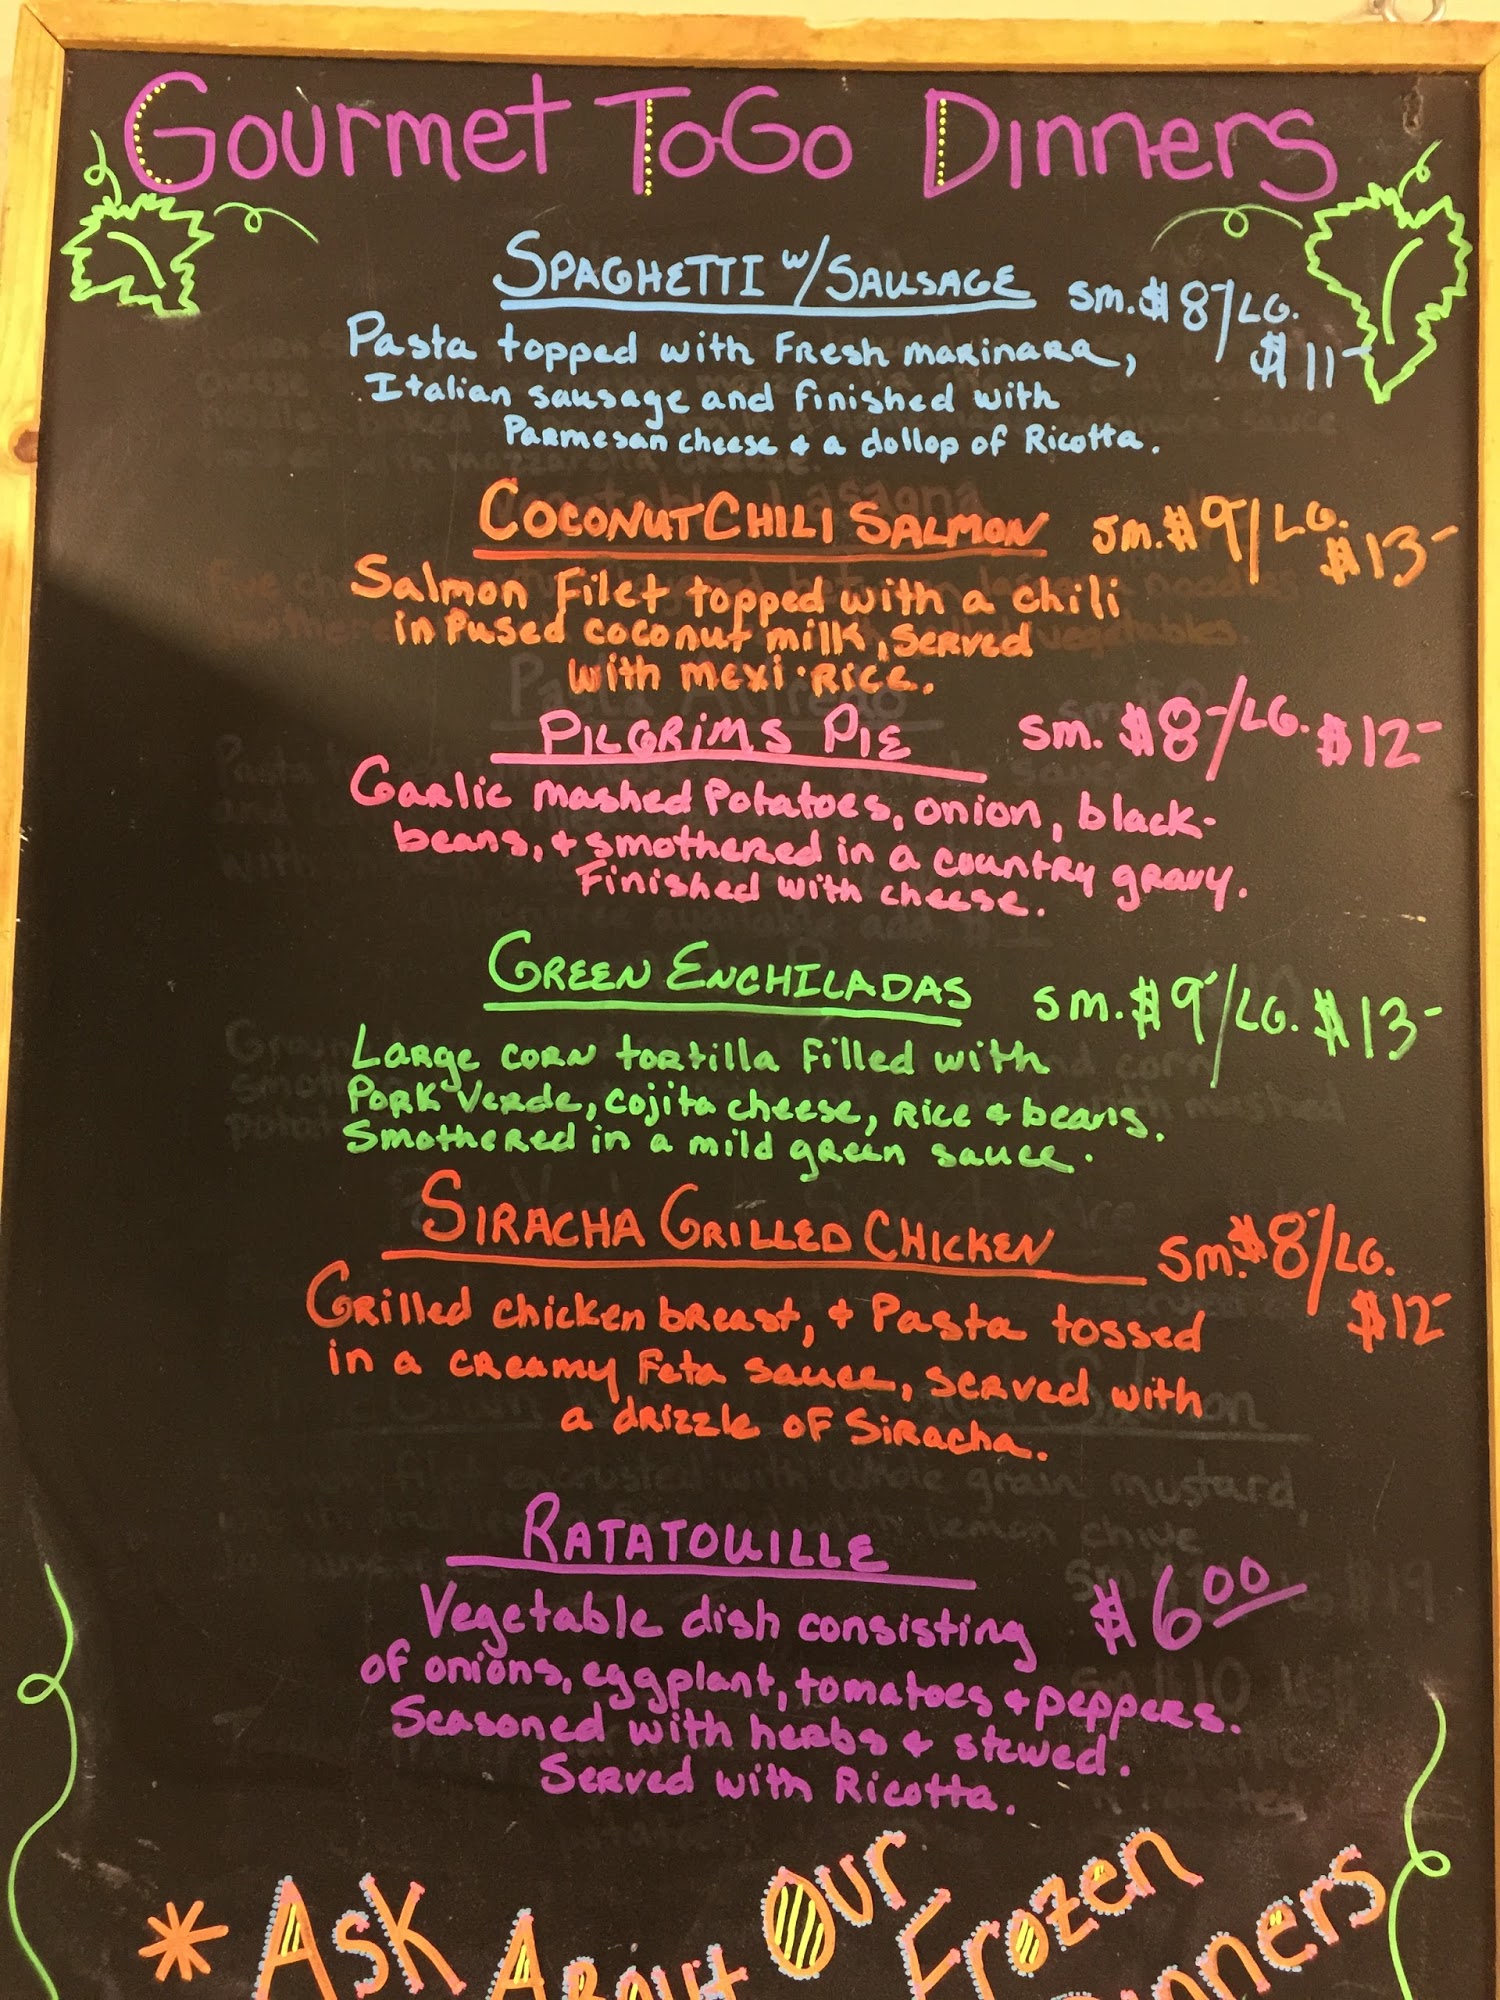 Gourmet ToGo Dinners
SPAGHETTI w/SAUSAGE sm. $8-/LG.
$11-
Pasta topped with Fresh marinara,
Italian sausage and finished with
Parmesan cheese + a dollop of Ricotta.
COCONUT CHILI SALMON sm. $9-/LG.
$13-
Salmon Filet topped with a chili
in Pused coconut milk, served
with mexi-Rice.
PILGRIMS PIE sm. $8-/LG. $12-
Garlic mashed Potatoes, onion, black-
beans, + smothered in a country gravy.
Finished with cheese.
GREEN ENCHILADAS sm. $9-/LG. $13-
Large corn tortilla filled with
Pork Verde, cojita cheese, rice + beans.
Smothered in a mild green sauce.
SIRACHA GRILLED CHICKEN sm. $8-/LG.
$12-
Grilled chicken breast, + Pasta tossed
in a creamy Feta sauce, served with
a drizzle of Siracha.
RATATOUILLE
$6.00
Vegetable dish consisting
of onions, eggplant, tomatoes + peppers.
Seasoned with herbs + stewed.
Served with Ricotta.
*Ask About Our Frozen
Dinners